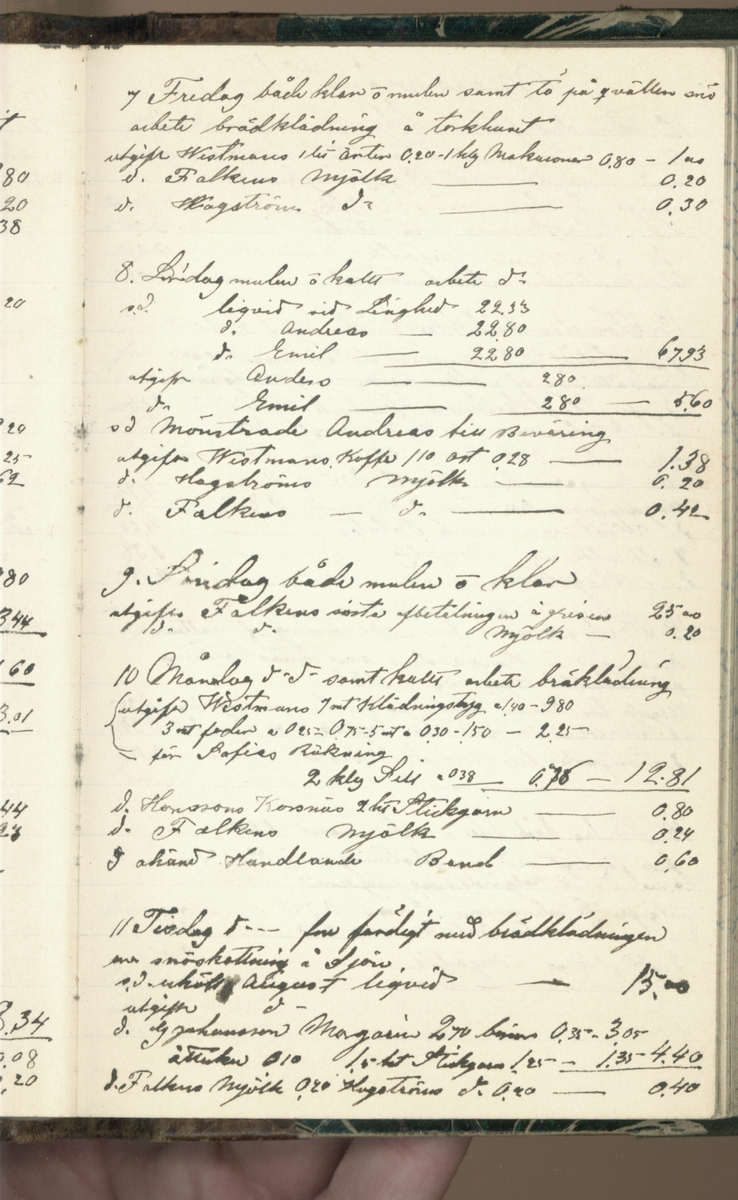 7 Fredag både klar o mulen samt tö på qvällen snö
arbete brädklädning å torkhuset
utgift Westmans 1 lit ärter 0,20 - 1 klg Makaroner 0,80 - 1 00
d. Falkens Mjölk 0,20
d. Hagströms d:o 0,30
8. Lördag mulen o kallt arbete d:o
s.d. liqvid vid Linghed 22,33
d. Andreas 22,80
d. Emil 22,80 67,93
utgift Anders 2 80
d. Emil 2 80 5,60
sd Mönstrade Andreas till Beväring
utgifter Westmans Kaffe 1 10 ost 0,28 1,38
d. Hagströms Mjölk 0,20
d. Falkens d:o 0,42
9. Söndag både mulen o klar
utgifter Falkens sista afbetalningen å grisen 25 00
d. d. Mjölk 0,20
10 Måndag d:o d:o samt kallt arbete brädklädning
utgift Westmans 7 mt Klädningstyg a 1,40 - 9 80
3 mt foder a 0 25 - 0,75 - 5 mt a 0 30 - 1,50 - 2,25
för Sofias Räkning
2 klg Sill a 0 38 0,76 - 12,81
d. Hanssons Korsnäs 2 ht Stickgarn 0,80
d. Falkens Mjölk 0,24
d okänd Handlande Band 0,60
11 Tisdag d - - - färdigt med brädklädningen
snöskottning å Sjön
s.d. erhöll August liqvid 15,00
utgifter d:o
d. Johansson Margarin 2 70 0,35 - 3,05
ättika 0 10 1,5 ht Stickgarn 1,25 - 1,35 4,40
d. Falkens Mjölk 0,20 Hagströms d:o 0,20 0,40